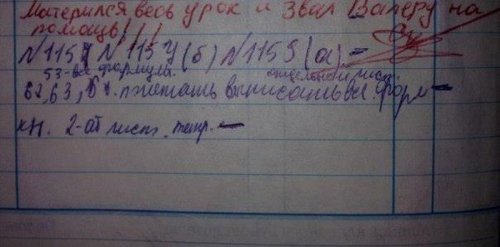 Матерился весь урок и звал Валеру на
помощь!!!
№1154 №1154(б) №1155(а)
53-все формулы. отдельный лист.
62,63, читать выписать все форм
кн. 2-ой лист. тетр.